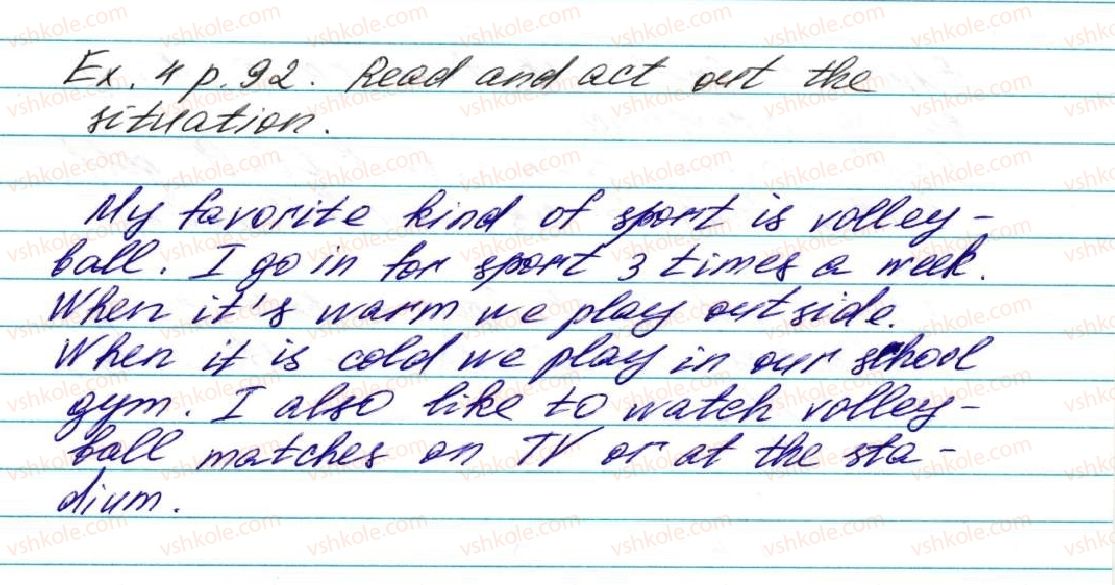 Ex. 4 p. 92. Read and act out the
situation.
My favorite kind of sport is volley-
ball. I go in for sport 3 times a week.
When it's warm we play outside.
When it is cold we play in our school
gym. I also like to watch volley-
ball matches on TV or at the sta-
dium.